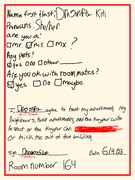 Name first & last: Dragonflur Kiti
Pronouns She/her
are you a:
mr mrs mx?
Any pets?
yes no other
Are you ok with roommates?
yes no maybe
I, Dragonflur agree to treat my apartment, my
neighbours, their apartments, and the Keydur with
respect or the Keydur can
or kick me out of the building.
Sign: Dragonflur Date: 6/4/23
Room number 164